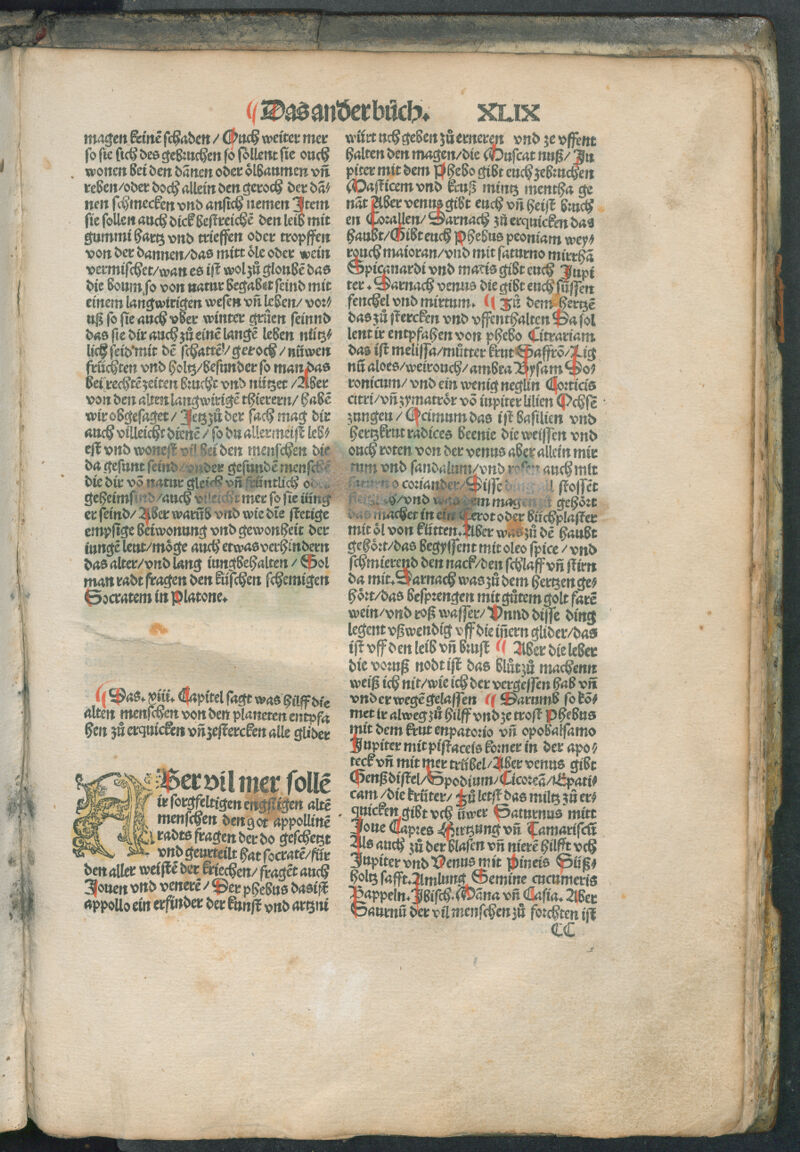 ¶ Das ander bůch. XLIX
magen keinē schaden / Ouch weiter mer
so sie sich des gebruchen so söllent sie ouch
wonen bei den dānen oder ölbaumen vñ
reben/oder doch allein den geroch der dā-
nen schmecken vnd ansich nemen Item
sie sollen auch dick bestreichē den leib mit
gummi hartz vnd trieffen oder tropffen
von der dannen/das mitt öle oder wein
vermischet/wan es ist wol zů gloubē das
die boum so von natur begabet seind mit
einem langwirigen wesen vñ leben/ vor-
uß so sie auch vber winter grüen seinnd
das sie dir auch zů einē langē leben nütz-
lich seid mit dē schattē/geroch/nüwen
früchten vnd holtz/besunder so man das
bei rechtē zeiten brucht vnd nützet /Aber
von den alten langwirigē thierern/ habē
wir obgesaget/ Jetz zů der sach mag dir
auch villeicht dienē/so du allermeist leb-
est vnd wonest vil bei den menschen die
da gesunt seind/vnder gesundē menschē
die dir vō natur gleich vñ früntlich
geheim sind/auch vileicht mer so sie iüng
er seind/ Aber warūb vnd wie die stetige
empsige beiwonung vnd gewonheit der
iungē leut/möge auch etwas verhindern
das alter/vnd lang iungbehalten / Sol
man radt fragen den küschen schemigen
Socratem in Platone.
¶ Das. xviii. Capitel sagt was hilff die
alten menschen von den planeten entpfa
hen zů erquicken vñ zestercken alle glider
ABer vil mer sollē
ir sorgfeltigen engstigen altē
menschen den got appollinē
radts fragen der do geschetzt
vnd geurteilt hat socratē/für
den aller weistē der kriechen/ fragēt auch
Jouen vnd venerē/ Der phebus das ist
appollo ein erfinder der kunst vnd artzni
würt uch geben zů erneren vnd ze vffent
halten den magen/die Muscat nuß/ Ju
piter mit dem Phebo gibt euch zebruchen
Masticem vnd kruß mintz mentha ge
nāt Aber venus gibt euch vñ heist bruch
en Corallen/ Darnach zů erquicken das
haubt/Gibt euch Phebus peoniam wey-
rouch maioran/vnd mit saturno mirrhā
Spicanardi vnd macis gibt euch Jupi
ter. Darnach venus die gibt euch süssen
fenchel vnd mirtum. ¶ Zů dem hertzē
das zů stercken vnd vffenthalten Da sol
lent ir entpfahen von phebo Citrariam
das ist melissa/mütter krut Saffrō/Lig
nū aloes/weirouch/ambra Bysam Do-
ronicum/ vnd ein wenig neglin Corticis
citri/vñ zymatrör vō iupiter lilien Ochsē
zungen/ Ocimum das ist basilien vnd
hertzkrut radices beenie die weissen vnd
ouch roten von der venus aber allein mir
tum vnd sandalum/vnd rosen auch mit
coriander/Disse stossēt
/vnd dem magen gehört
das machet in ein Cerot oder büchplaster
mit öl von kütten. Aber was zů dē haubt
gehört/das begyssent mit oleo spice / vnd
schmierend den nack/den schlaff vñ stirn
da mit. Darnach was zů dem hertzen ge-
hört/das besprengen mit gůtem golt farē
wein/vnd roß wasser/ Vnnd disse ding
legent vßwendig vff die iñern glider/das
ist vff den leib vñ brust ¶ Aber die leber
die voruß nodt ist das blůt zů machenn
weiß ich nit/wie ich der vergessen hab vñ
vnd er wegē gelassen ¶ Darumb so kō-
met ir alweg zů hilff vnd ze trost Phebus
mit dem krut enpatorio vñ opobalsamo
Jupiter mit pistaceis korner in der apo-
teck vñ mit mer trübel/Aber venus gibt
Genßdistel/Spodium/Cicoreā/Epati-
cam/die krüter/ Zů letst das miltz zů er-
quicken gibt vch üwer Saturnus mitt
Joue Capies Hirtzung vñ Tamariscū
Als auch zů der blasen vñ nierē hilfft vch
Jupiter vnd Venus mit Pineis Süß-
holtz safft. Amlung Semine cucumeris
Pappeln. Jbisch. Māna vñ Casia. Aber
Saturnū der vil menschen zů forchten ist
CC